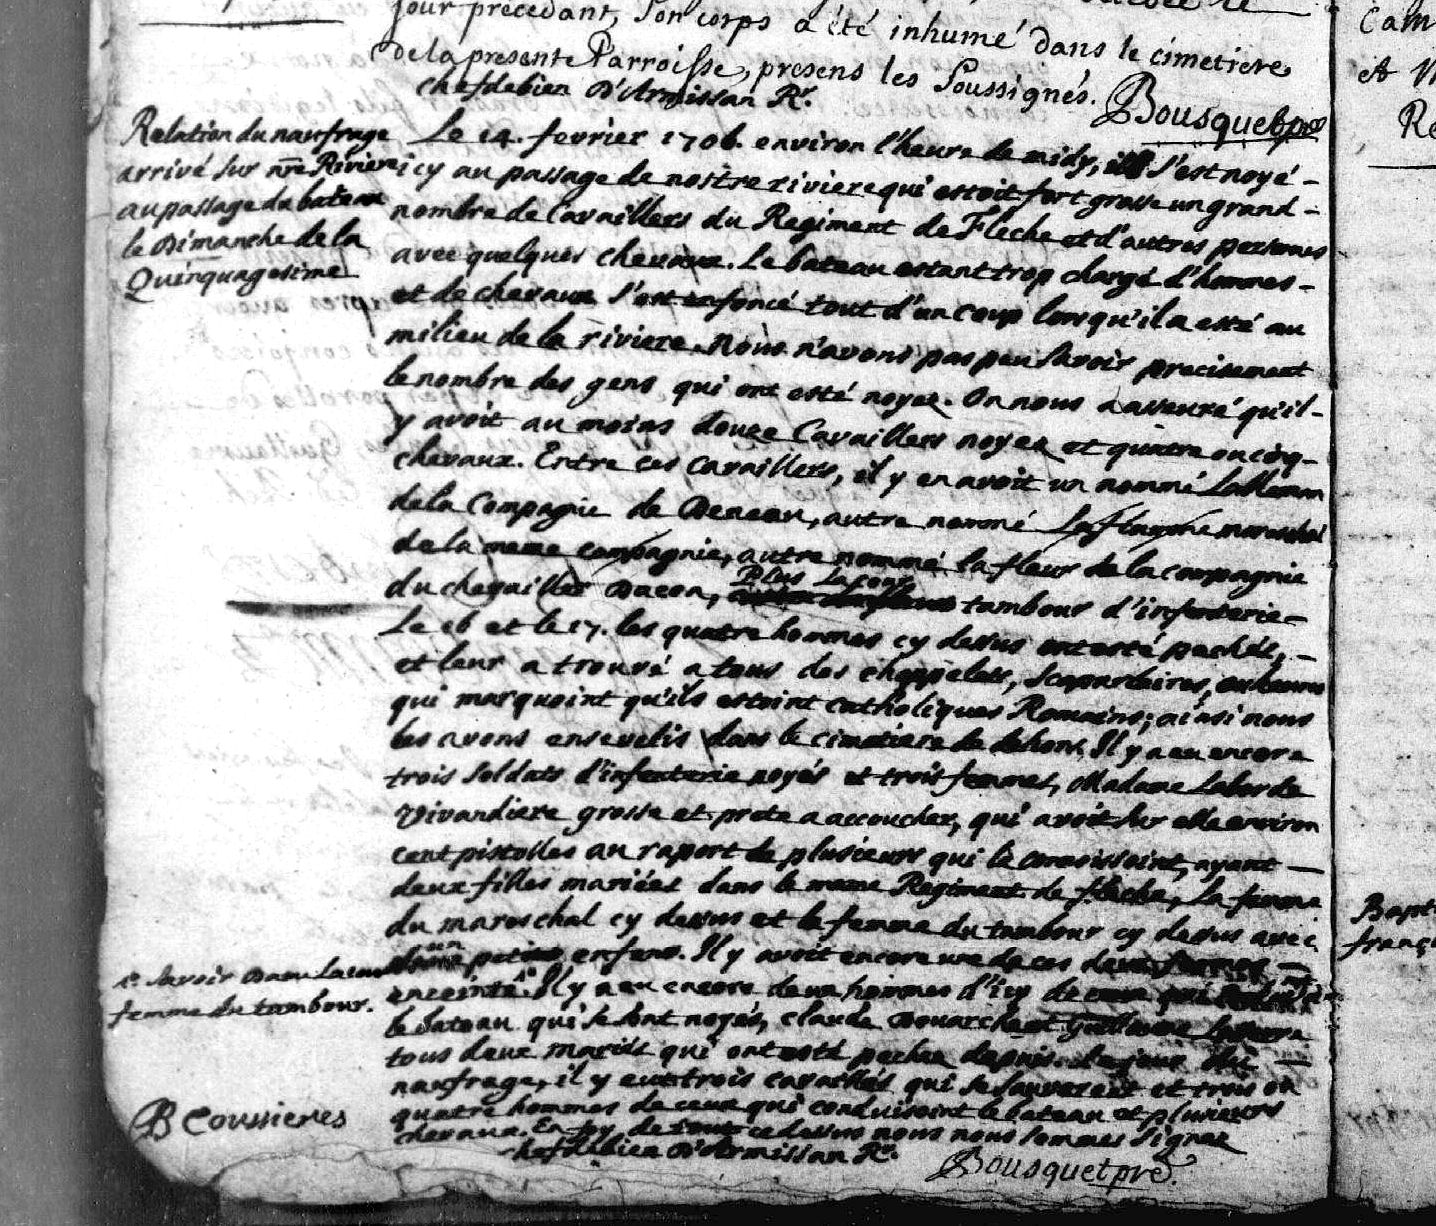 jour precedant, son corps a été inhumé dans le cimetiere
de la presente Parroisse, presens les Soussignés.
Chefdebien D'Armissan Rr.
Bousquet pre
Relation du naufrage
arrivé sur nre Riviere
au passage du bateau
le Dimanche de la
Quinquagesime
Le 14. fevrier 1706. environ l'heure de midy, il s'est noyé
icy au passage de nostre riviere qui estoit fort grosse un grand
nombre de Cavailliers du Regiment de Fleche et d'autres personnes
avec quelques chevaux. Le bateau estant trop chargé d'hommes
et de chevaux s'est enfoncé tout d'un coup lorsqu'il a esté au
milieu de la riviere. Nous n'avons pas peu savoir precisement
le nombre des gens qui ont esté noyez. On nous a asseuré qu'il
y avoit au moins douze Cavailliers noyez et quatre ou cinq
chevaux. Entre ces Cavailliers, il y en avoit un nommé
de la Compagnie de autre nommé La flamme mareschal
de la meme compagnie, autre nommé la fleur de la compagnie
du chevaillier Dacon, Plus Lacour tambour d'infanterie
Le 16 et le 17. les quatre hommes cy dessus ont esté pechés,
et leur a trouvé a tous des chappelets, Scapulaires, ou heures
qui marquoint qu'ils estoint catholiques Romains; ainsi nous
les avons ensevelis dans le cimetiere de dehors. Il y a eu encore
trois soldats d'infanterie noyés et trois femmes, Madame Laborde
Vivandiere grosse et prete a accoucher, qui avoit sur elle environ
cent pistolles au raport de plusieurs qui la conoissoint, ayant
deux filles mariées dans le meme Regiment de fleche, La femme
du mareschal cy dessus et la femme du tambour cy dessus avec
un petit enfens. Il y avoit encore une de ces deux femmes
enceinte. Il y a eu encore deux hommes d'icy de ceux qui
le bateau qui se sont noyés, claude Douarche et Guillaume
tous deux mariés qui ont esté pechez depuis. Le jour du
naufrage, il y eut trois cavailliés qui se sauverent et trois ou
quatre hommes de ceux qui conduisoint le bateau et plusieurs
chevaux. En foy de tout ce dessus nous nous sommes signez
Chefdebien D'Armissan Rr.
Bousquet pre.
Savoir
femme du tambour.
B Coussieres
Cam
et
Re
Bapt
franç